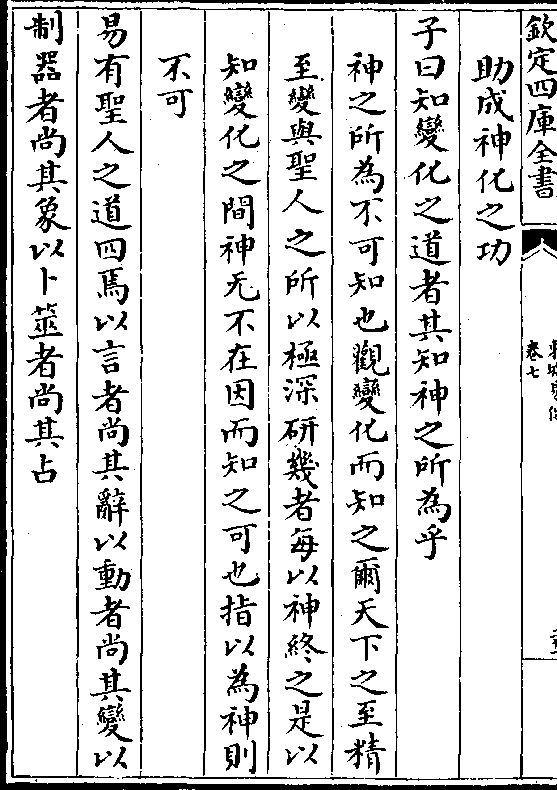 欽定四庫全書
卷七
助成神化之功
子曰知變化之道者其知神之所為乎
神之所為不可知也觀變化而知之爾天下之至精
至變與聖人之所以極深研幾者每以神終之是以
知變化之間神无不在因而知之可也指以為神則
不可
易有聖人之道四焉以言者尚其辭以動者尚其變以
制器者尚其象以卜筮者尚其占